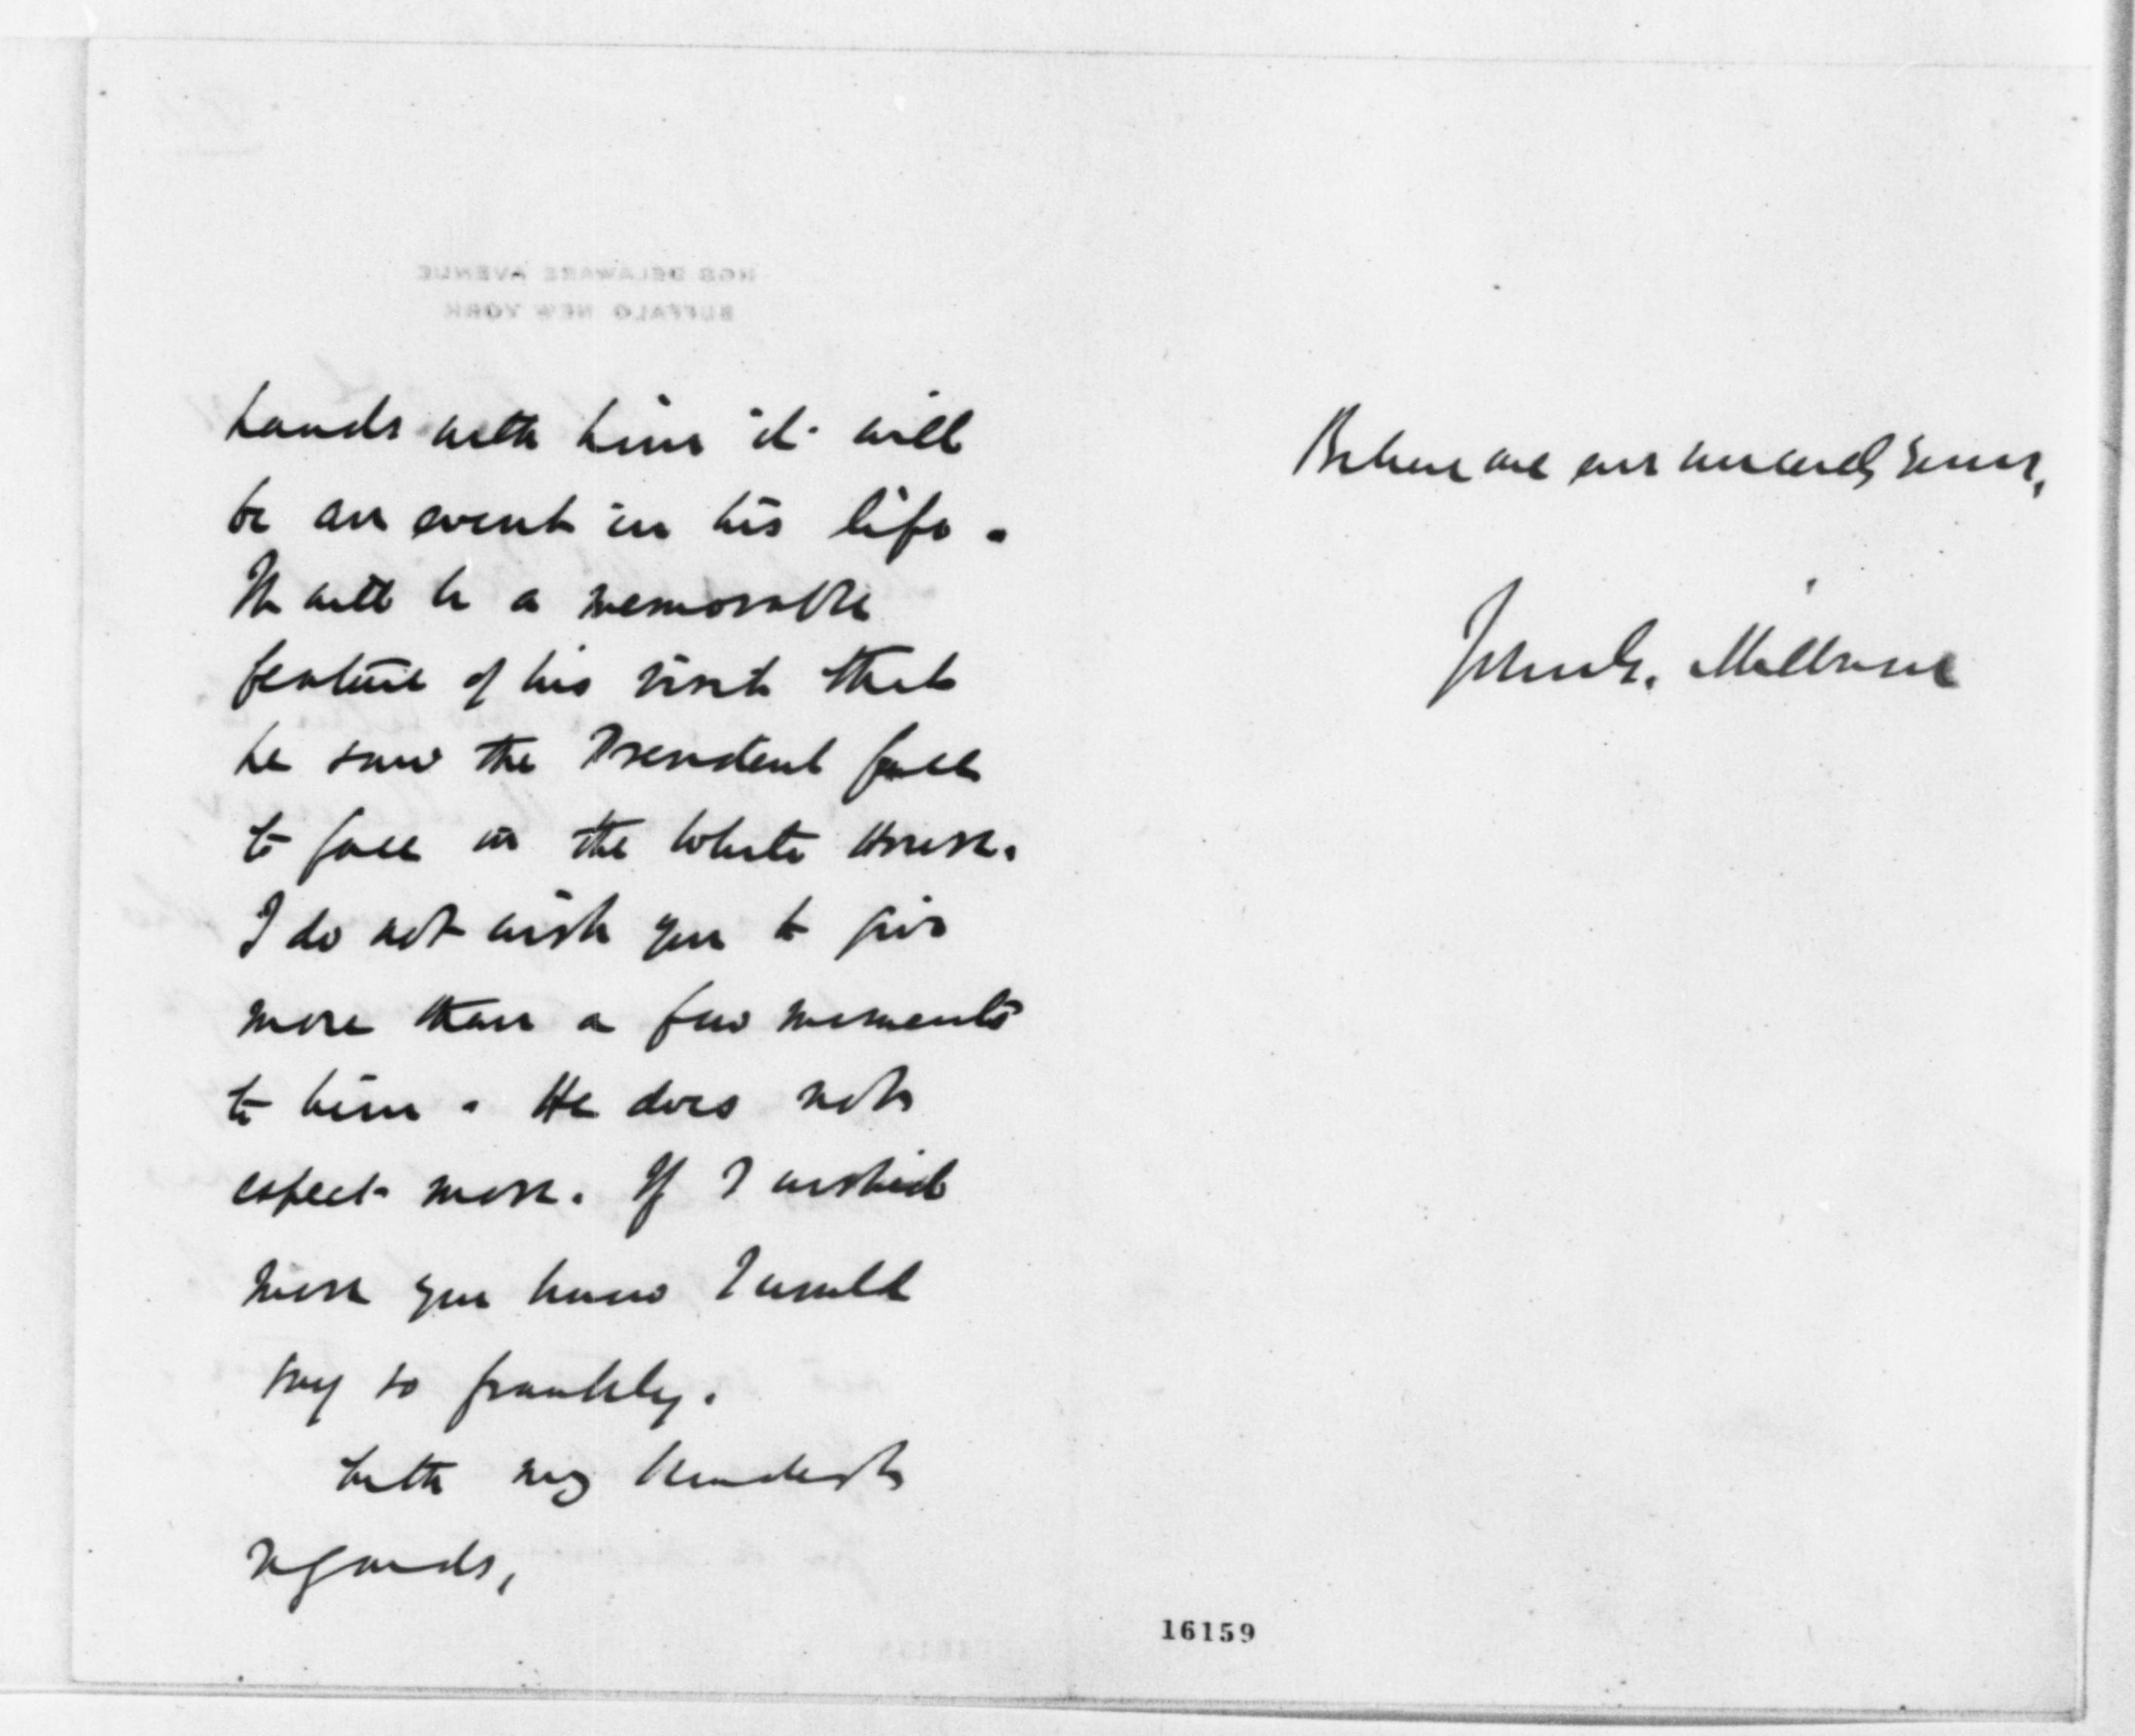 hands with him it will
be an event in his life.
It will be a memorable
feature of his visit that
he saw the President face
to face in the White House.
I do not wish you to give
more than a few moments
to him. He does not
expect more. If I wished
more you know I would
say so frankly.
With my kindest
regards,
Believe me ever sincerely yours,
John G. Milburn
16159